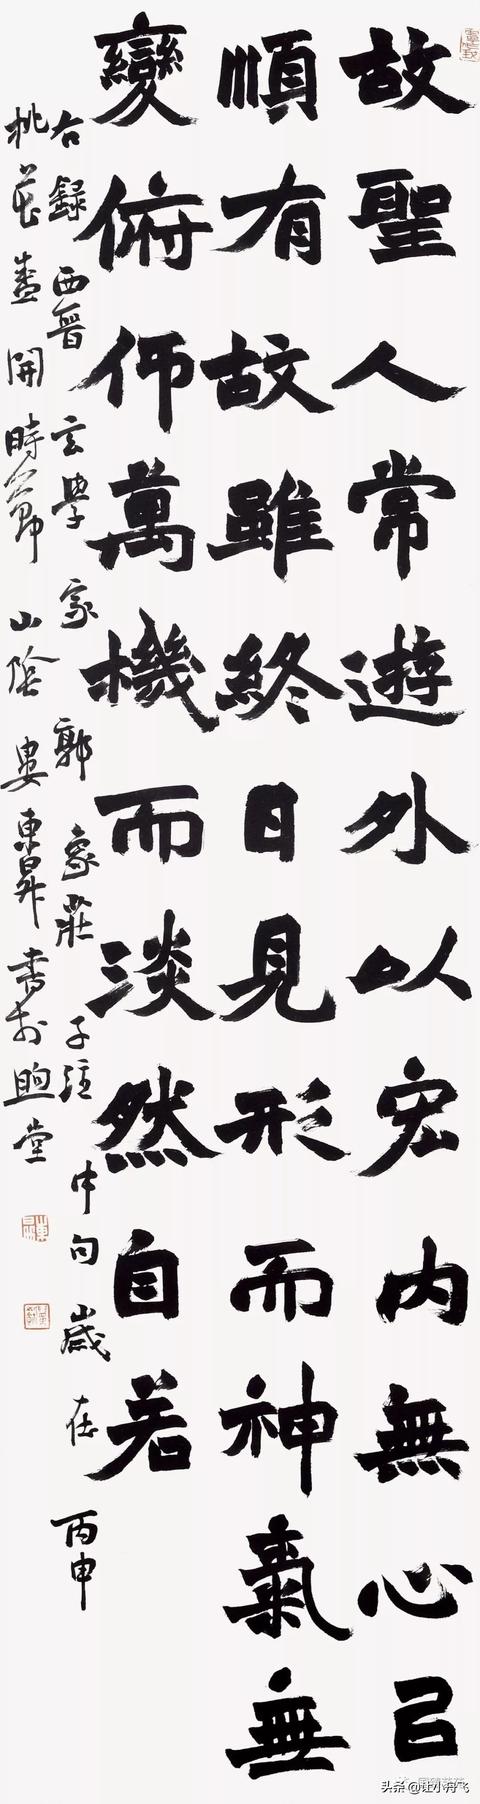 故聖人常遊外以宏内無心㠯
順有故雖終日見形而神氣無
變俯仰萬機而淡然自若
右録西晉玄學家郭象莊子注中句歲在丙申
桃花盡開時節山陰婁東昇書於煦堂
头条